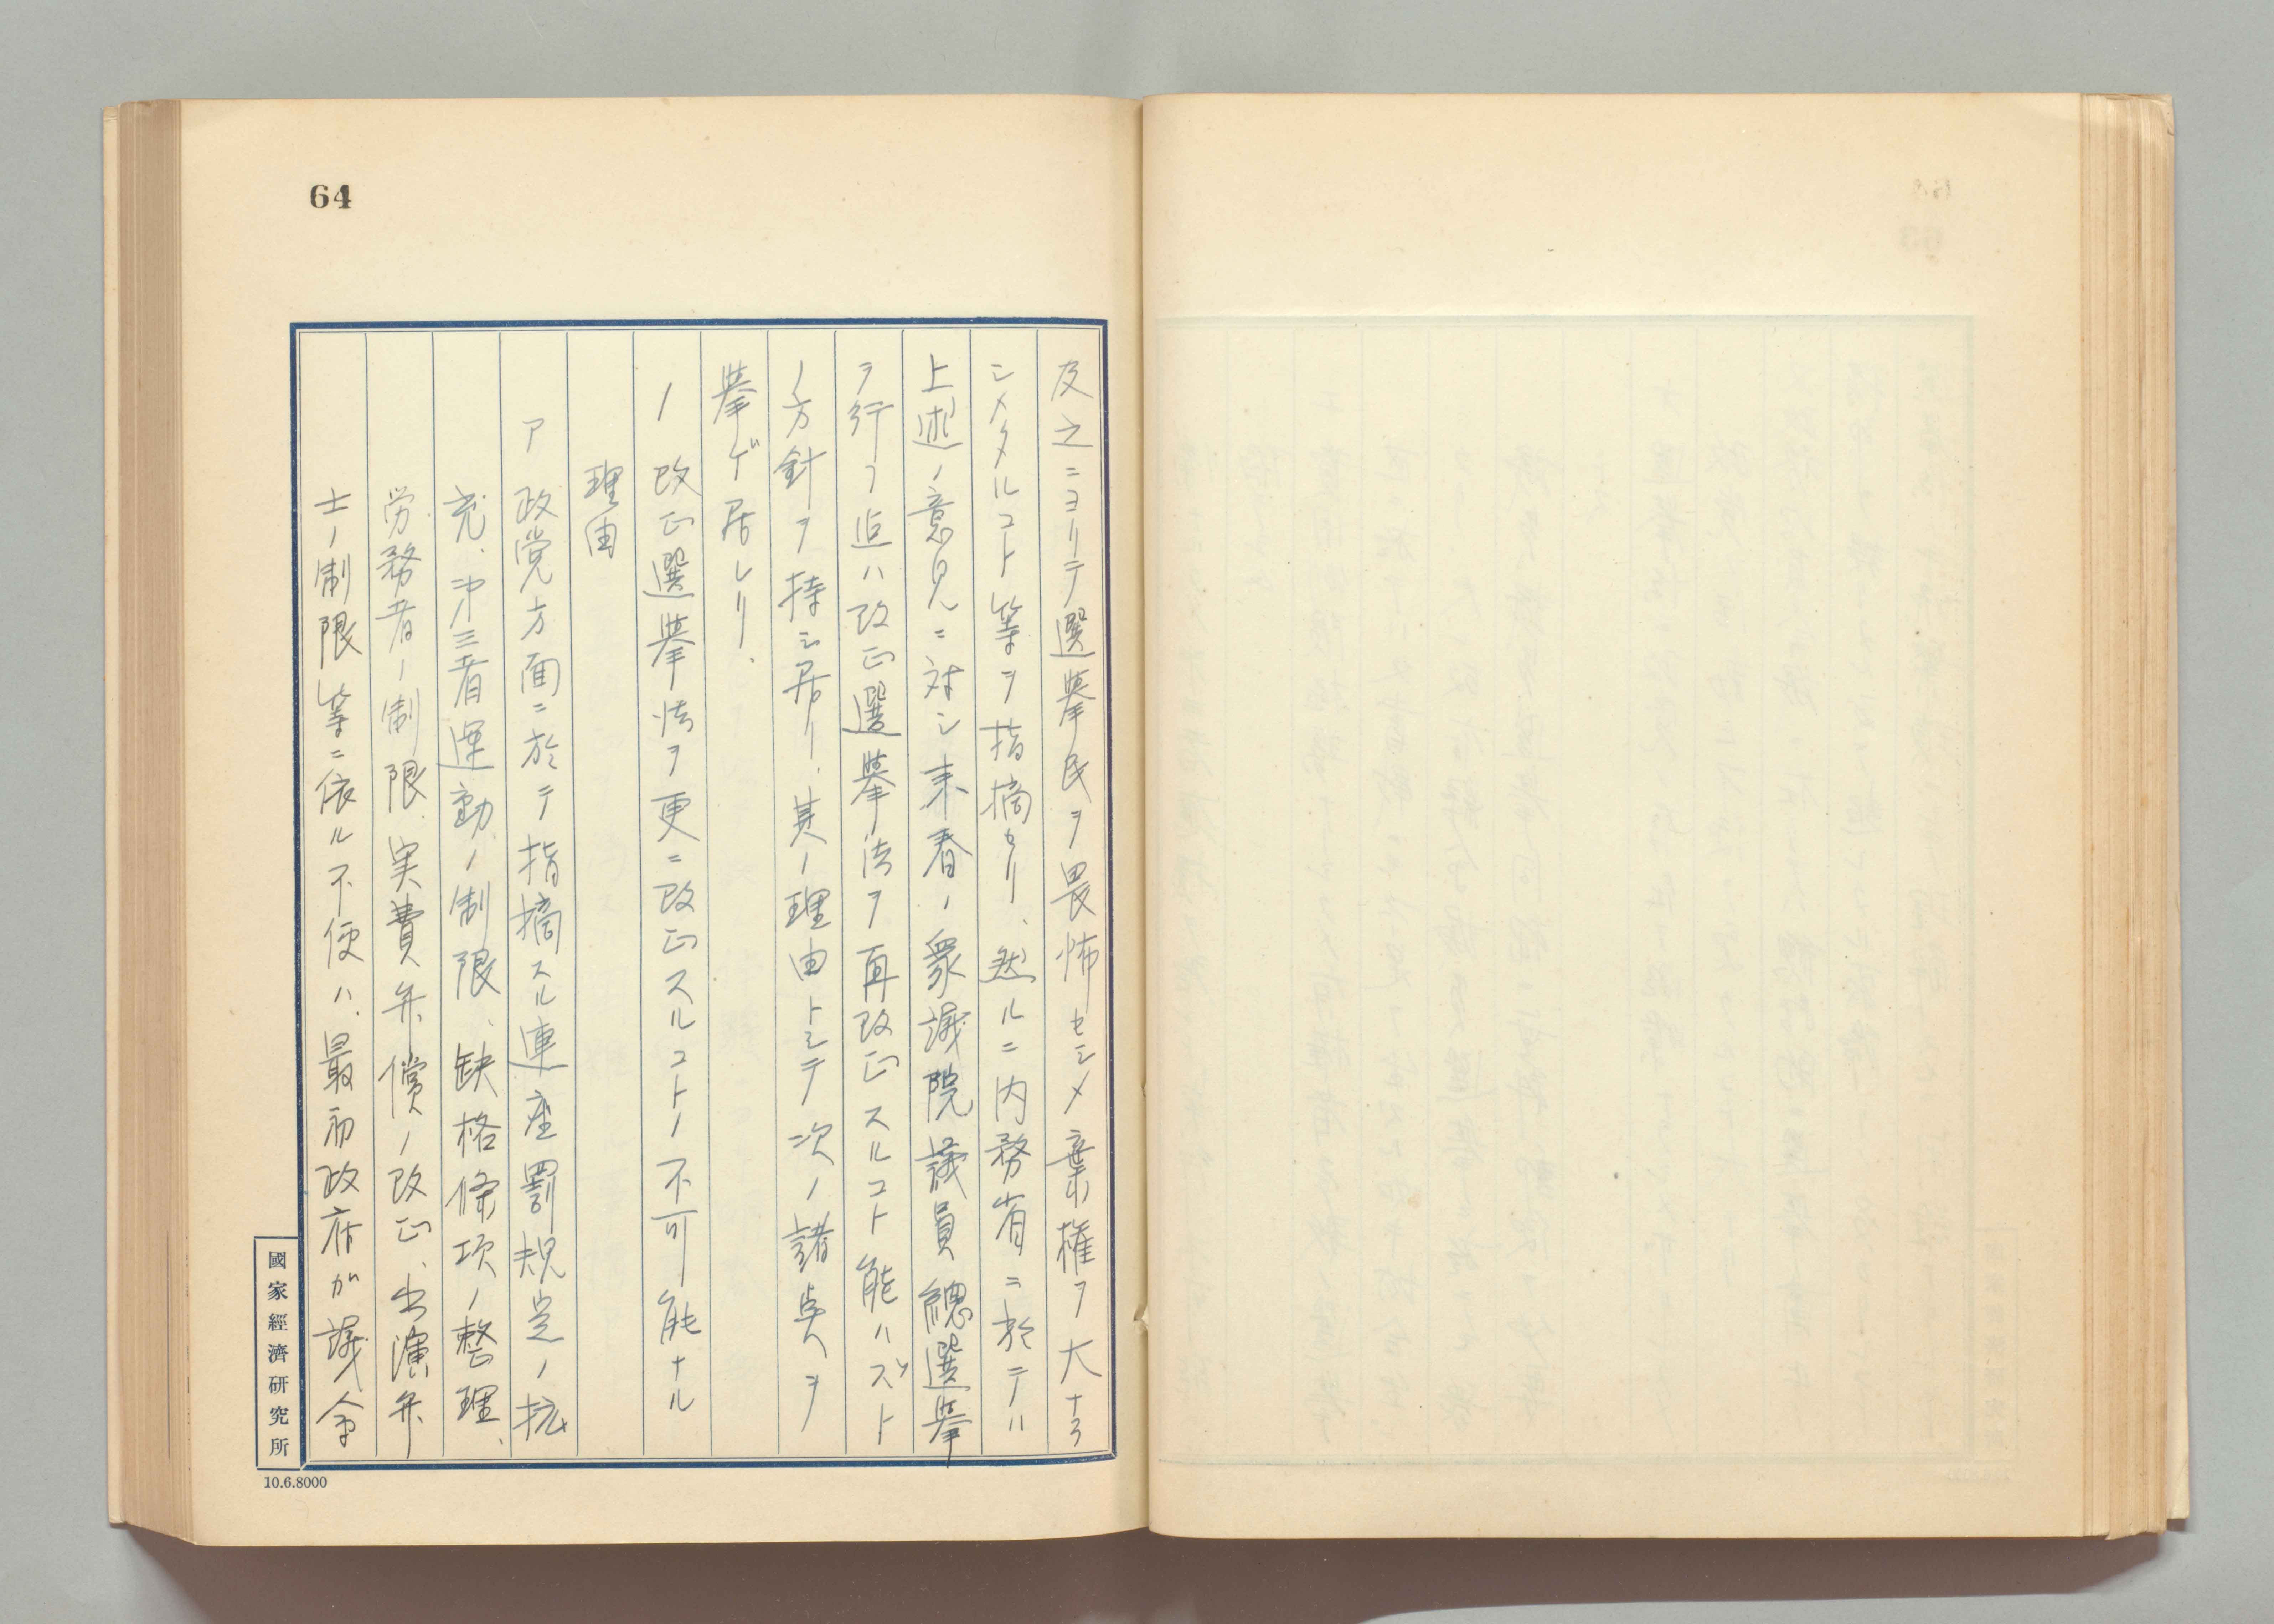 64
及之ニヨリテ選挙民ヲ畏怖セシメ棄権ヲ大ナラ
シメタルコト等ヲ指摘セリ、然ルニ内務省ニ於テハ
上述ノ意見ニ対シ来春ノ衆議院議員總選挙
ヲ行フ迄ハ改正選挙法ヲ再改正スルコト能ハズト
ノ方針ヲ持シ居リ、其ノ理由トシテ次ノ諸点ヲ
挙ゲ居レリ、
ノ改正選挙法ヲ更ニ改正スルコトノ不可能ナル
理由
ア 政党方面ニ於テ指摘スル連座罰規定ノ拡
充、才三者運動ノ制限、缺格條項ノ整理、
労務者ノ制限、実費弁償ノ改正、出演弁
士ノ制限等ニ依ル不便ハ、最初政府ガ議会
國家經濟研究所
10.6.8000